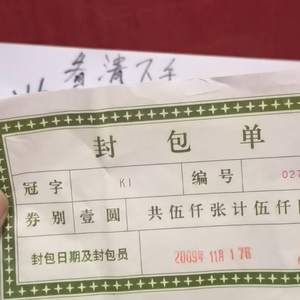 看清不
封包单
冠字 K1 编号 027
券别 壹圆 共伍仟张计伍仟
封包日期及封包员 2009年11月17日